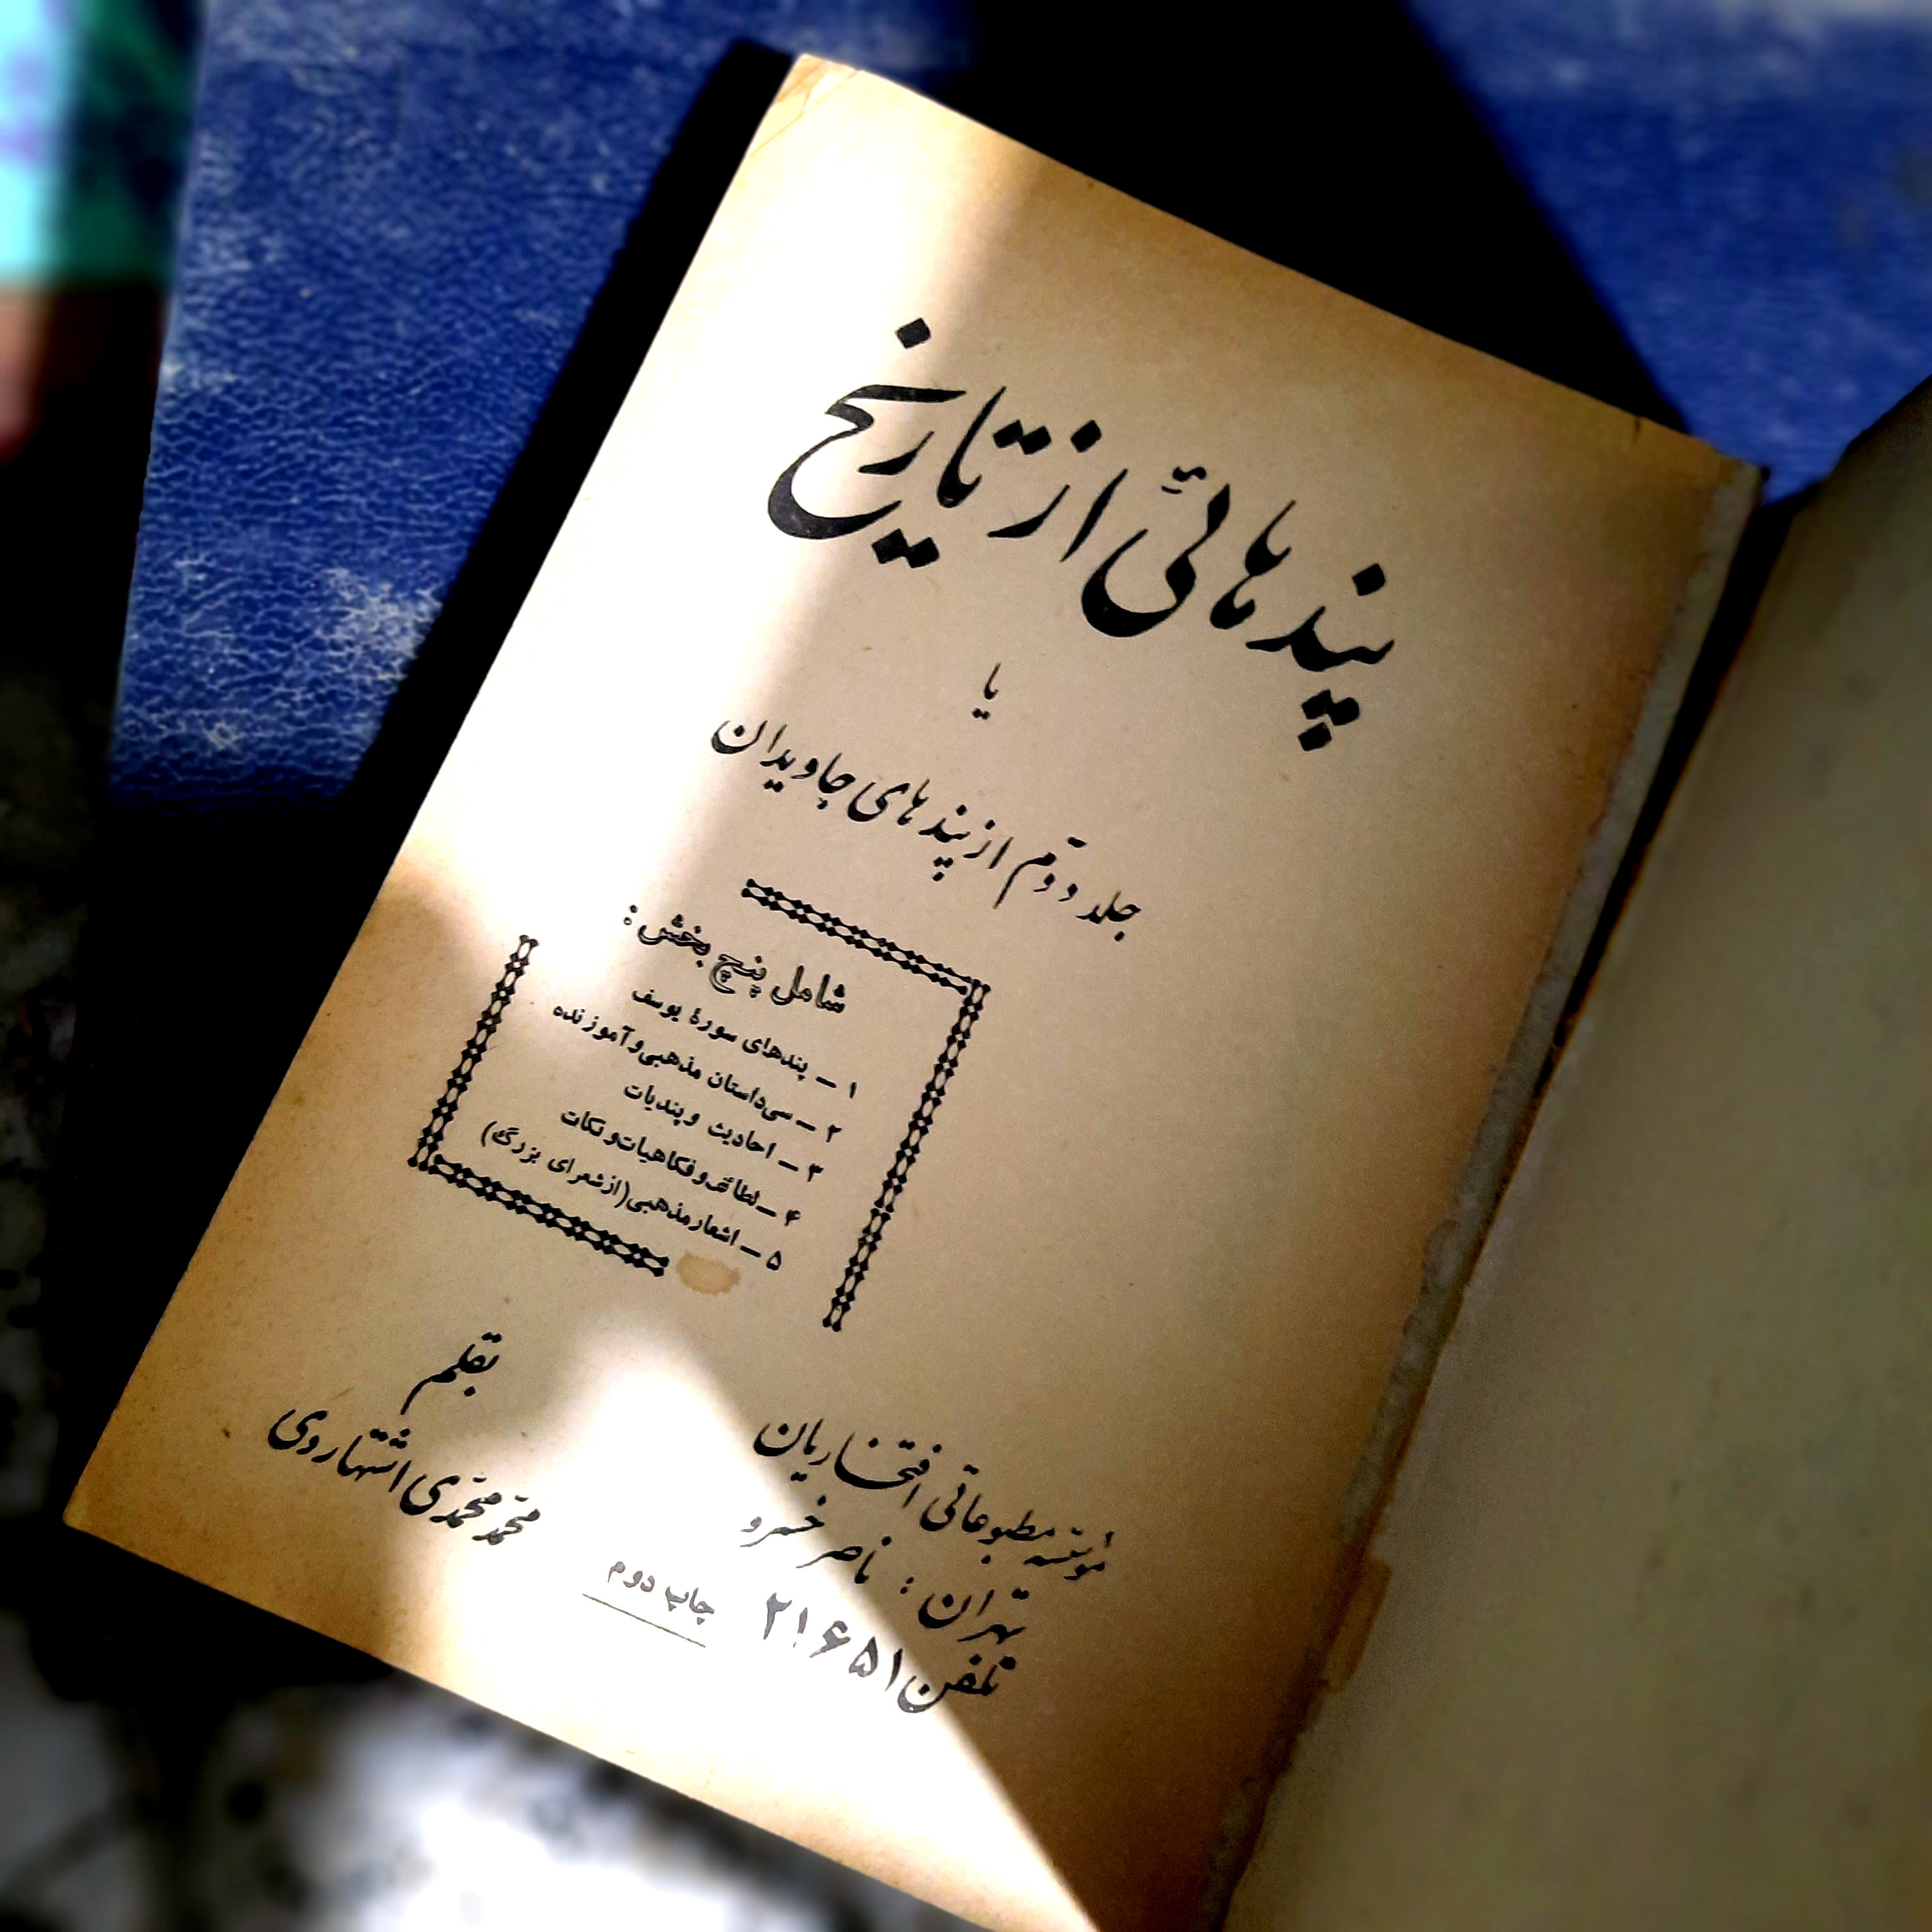 پندهائی از تاریخ
یا
جلد دوّم از پندهای جاویدان
شامل پنج بخش :
۱ – پندهای سورهٔ یوسف
۲ – سی‌داستان مذهبی و آموزنده
۳ – احادیث و پندیات
۴ – لطائف و فکاهیات و نکات
۵ – اشعار مذهبی (از شعرای بزرگ)
بقلم
محمّد محمّدی اشتهاردی
مؤسّسه مطبوعاتی افتخاریان
تهران : ناصر خسرو
تلفن ۲۱۶۵۱
چاپ دوم